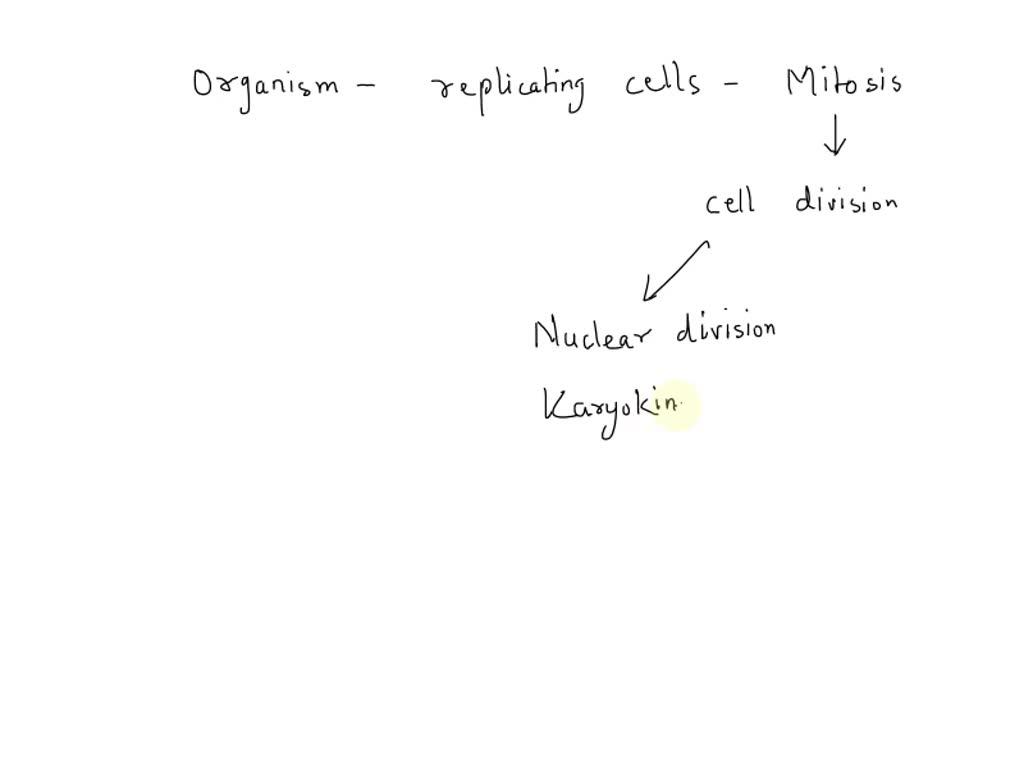 Organism - replicating cells - Mitosis
cell division
Nuclear division
Karyokin